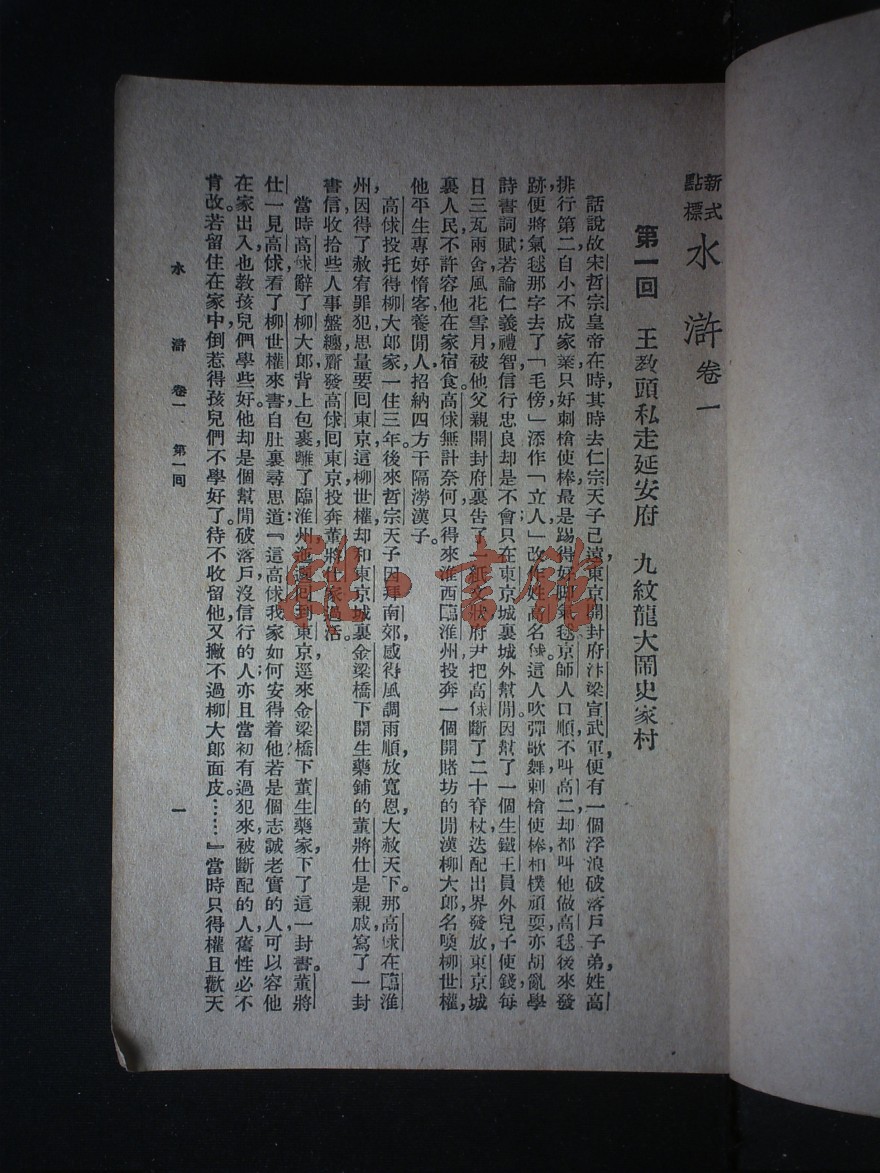 新式標點 水滸 卷一
第一回　王教頭私走延安府　九紋龍大鬧史家村
話說故宋哲宗皇帝在時，其時去仁宗天子已遠，東京開封府汴梁宣武軍，便有一個浮浪破落戶子弟，姓高，
排行第二，自小不成家業，只好刺槍使棒，最是踢得好脚氣毬，京師人口順，不叫高二，却都叫他做高毬。後來發
跡，便將氣毬那字去了「毛傍」，添作「立人」，改作姓高，名俅。這人吹彈歌舞，刺槍使棒，相樸頑耍，亦胡亂學
詩書詞賦；若論仁義禮智，信行忠良，却是不會，只在東京城裏城外幫閒。因幫了一個生鐵王員外兒子使錢，每
日三瓦兩舍，風花雪月，被他父親開封府裏告了一紙文狀，府尹把高俅斷了二十脊杖，迭配出界發放，東京城
裏人民不許容他在家宿食。高俅無計奈何，只得來淮西臨淮州投奔一個開賭坊的閒漢柳大郎，名喚柳世權，
他平生專好惜客養閒人，招納四方干隔澇漢子。
高俅投托得柳大郎家，一住三年。後來哲宗天子因拜南郊，感得風調雨順，放寬恩，大赦天下。那高俅在臨淮
州，因得了赦宥罪犯，思量要囘東京。這柳世權却和東京城裏金梁橋下開生藥鋪的董將仕是親戚，寫了一封
書信，收拾些人事盤纏，齎發高俅囘東京投奔董將仕家過活。
當時高俅辭了柳大郎，背上包裹，離了臨淮州，迤邐囘到東京，逕來金梁橋下董生藥家，下了這一封書。董將
仕一見高俅，看了柳世權來書，自肚裏尋思道：『這高俅，我家如何安得着他？若是個志誠老實的人，可以容他
在家出入，也教孩兒們學些好。他却是個幫閒破落戶，沒信行的人；亦且當初有過犯來，被斷配的人，舊性必不
肯改。若留住在家中，倒惹得孩兒們不學好了。待不收留他，又撇不過柳大郎面皮。……』當時只得權且歡天
水滸　卷一　第一囘　一